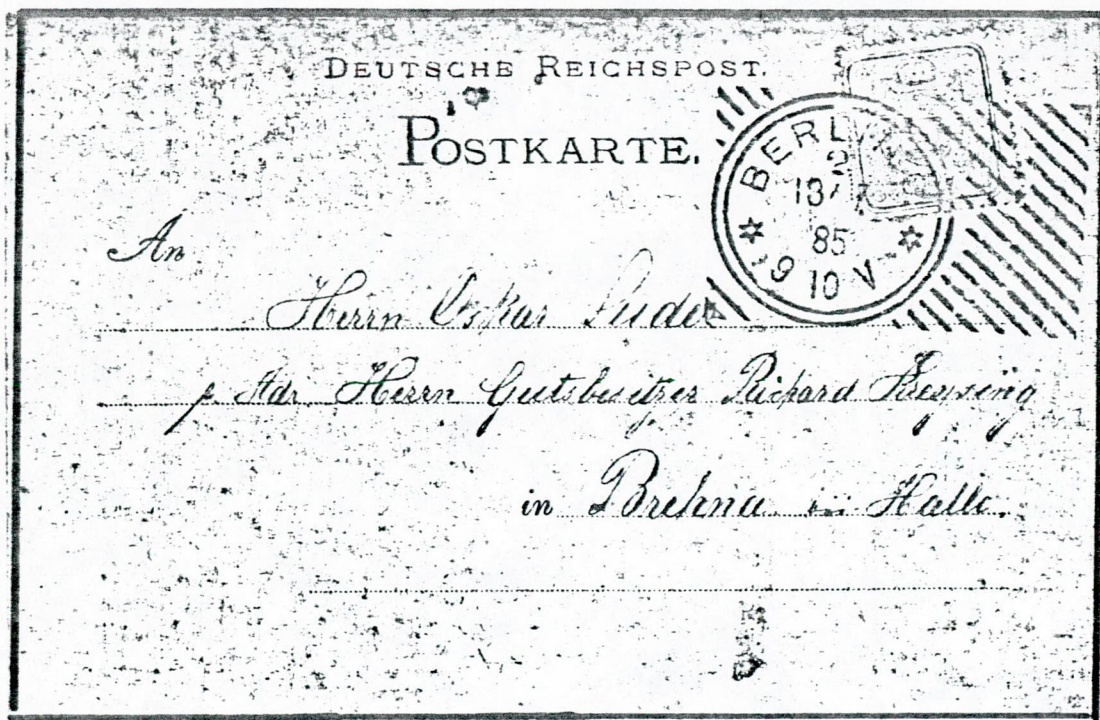 DEUTSCHE REICHSPOST.
POSTKARTE.
BERL
13/
85
10 V
An
Herrn Oskar
p. Adr. Herrn Gutsbesitzer Richard
in Brehna bei Halle.